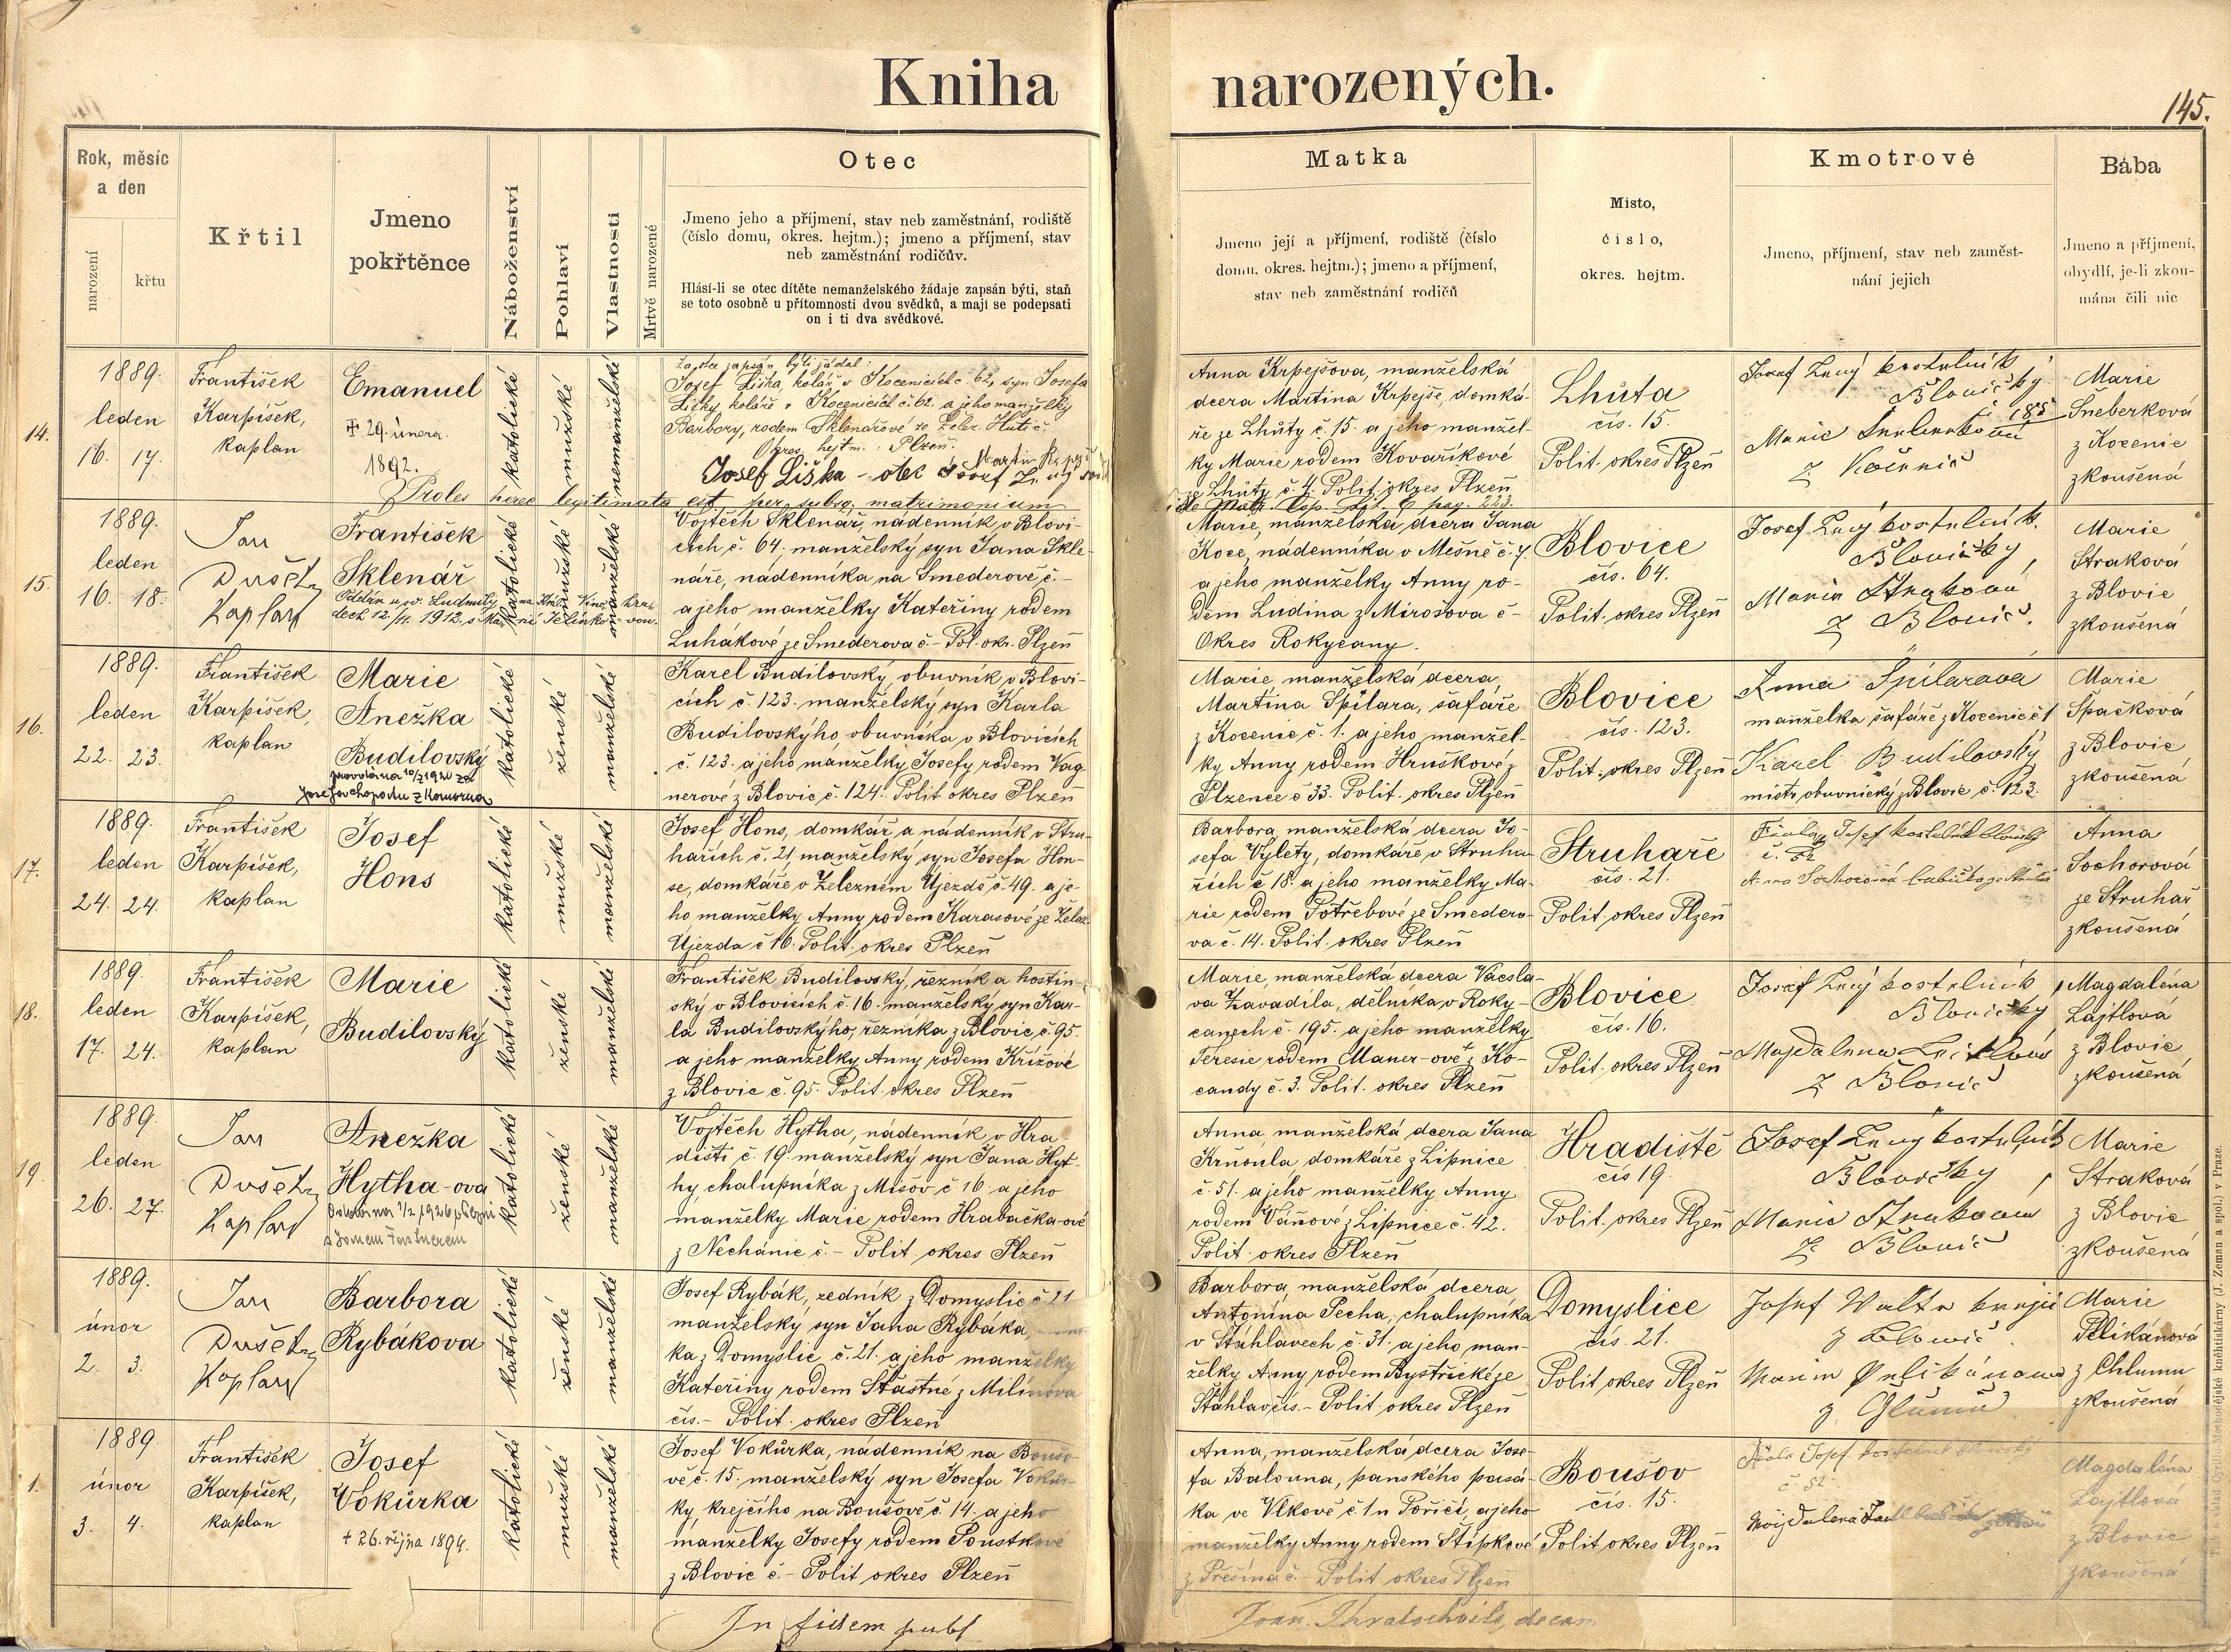 Kniha narozených.
145.
Rok, měsíc
a den
narození
křtu
Křtil
Jmeno
pokřtěnce
Náboženství
Pohlaví
Vlastnosti
Mrtvě narozené
Otec
Jmeno jeho a příjmení, stav neb zaměstnání, rodiště
(číslo domu, okres. hejtm.); jmeno a příjmení, stav
neb zaměstnání rodičův.
Hlásí-li se otec dítěte nemanželského žádaje zapsán býti, staň
se toto osobně u přítomnosti dvou svědků, a mají se podepsati
on i ti dva svědkové.
Matka
Jmeno její a příjmení, rodiště (číslo
domu, okres. hejtm.); jmeno a příjmení,
stav neb zaměstnání rodičů
Misto,
číslo,
okres. hejtm.
Kmotrové
Jmeno, příjmení, stav neb zaměst-
nání jejich
Bába
Jmeno a příjmení,
obydlí, je-li zkou-
mána čili nic
14.
1889.
leden
16. 17.
František
Karpíšek,
kaplan
Emanuel
29. února
1892.
katolické
mužské
nemanželské
Za otce zapsán býti žádal:
Josef Liška, kolář v Kocenicích č. 62, syn Josefa
Lišky, koláře v Kocenicích č. 62. a jeho manželky
Barbory, rodem Sklenářové ze Želez. Hutí č.
Okres. hejtm. Plzeň.
Josef Liška - otec
Proles haec legitimata est per subsq. matrimonium
Anna Krpejšova, manželská
dcera Martina Krpejše, domká-
ře ze Lhůty č. 15. a jeho manžel-
ky Marie rodem Kovaříkové
ze Lhůty č. 4. Polit. okres Plzeň
pag. 223.
Lhůta
čís. 15.
Polit. okres Plzeň
Josef Lený kostelník
Blovický
č 185
Marie
z Kocenic
Marie
Šneberková
z Kocenic
zkoušená
15.
1889.
leden
16. 18.
Jan
Dušek
Kaplan
František
Sklenář
Oddán u sv. Ludmily na Král. Vinohra-
dech 12./11. 1912. s
katolické
mužské
manželské
Vojtěch Sklenář, nádenník v Blovi-
cích č. 64. manželský syn Jana Skle-
náře, nádenníka na Smederově č.-
a jeho manželky Kateřiny rodem
Luhákové ze Smederova č.- Pol. okr. Plzeň
Marie, manželská dcera Jana
Koce, nádenníka v Mešně č. 7.
a jeho manželky Anny ro-
dem Ludina z Mirošova č-
Okres Rokycany.
Blovice
čís. 64.
Polit. okres Plzeň
Josef Lený kostelník
Blovický,
Marie Straková
z Blovic.
Marie
Straková
z Blovic
zkoušená
16.
1889.
leden
22. 23.
František
Karpíšek,
kaplan
Marie
Anežka
Budilovský
provdána 10/2 1920 za
Josefa z Komorna
katolické
ženské
manželské
Karel Budilovský, obuvník v Blovi-
cích č. 123. manželský syn Karla
Budilovskýho, obuvníka v Blovicích
č. 123. a jeho manželky Josefy rodem Vág-
nerové z Blovic č. 124. Polit. okres Plzeň
Marie manželská dcera
Martina Špilara, šafáře
z Kocenic č. 1. a jeho manžel-
ky Anny rodem Hruškové z
Plzence č 33. Polit. okres Plzeň
Blovice
čís. 123.
Polit. okres Plzeň
Anna Špilarová
manželka šafáře z Kocenic č 1
Karel Budilovský
mistr obuvnický z Blovic č. 123.
Marie
Spačková
z Blovic
zkoušená
17.
1889.
leden
24. 24.
František
Karpíšek,
kaplan
Josef
Hons
katolické
mužské
manželské
Josef Hons, domkář a nádenník v Stru-
hařích č. 21. manželský syn Josefa Hon-
se, domkáře v Železném Újezdě č. 49. a je-
ho manželky Anny rodem Karasové ze Želez.
Újezda č 16. Polit. okres Plzeň
Barbora, manželská dcera Jo-
sefa Výlety, domkáře v Struha-
řích č 18. a jeho manželky Ma-
rie rodem Potřebové ze Smedero-
va č. 14. Polit. okres Plzeň
Struhaře
čís. 21.
Polit. okres Plzeň
Fiala Josef kostelník blovický
č. 52
Anna Sochorová
Anna
Sochorová
ze Struhař
zkoušená
18.
1889.
leden
17. 24.
František
Karpíšek,
kaplan
Marie
Budilovský
katolické
ženské
manželské
František Budilovský, řezník a hostin-
ský v Blovicích č. 16. manželský syn Kar-
la Budilovskýho, řezníka z Blovic, č. 95.
a jeho manželky Anny rodem Křížové
z Blovic č. 95. Polit. okres Plzeň
Marie, manželská dcera Vácsla-
va Zavadila, dělníka v Roky-
canech č. 195. a jeho manželky
Teresie rodem Mauer-ové z Ko-
candy č. 3. Polit. okres Plzeň
Blovice
čís. 16.
Polit. okres Plzeň
Josef Lený kostelník
Blovický
Magdalena
z Blovic
Magdaléna
Lajtlová
z Blovic
zkoušená
19.
1889.
leden
26. 27.
Jan
Dušek
Kaplan
Anežka
Hytha-ova
Oddána 7/2 1926 v Plzni
s Janem
katolické
ženské
manželské
Vojtěch Hytha, nádenník v Hra
dišti č. 19. manželský syn Jana Hyt-
hy, chalupníka z Mišov č 16 a jeho
manželky Marie rodem Hrabačka-ové
z Nechánic č.- Polit. okres Plzeň
Anna, manželská dcera Jana
Krňoula, domkáře z Lipnice
č. 51. a jeho manželky Anny
rodem Váňové z Lipnice č. 42.
Polit. okres Plzeň
Hradiště
čís 19.
Polit. okres Plzeň
Josef Lený kostelník
Blovický,
Marie Straková
z Blovic
Marie
Straková
z Blovic
zkoušená
1889.
únor
2. 3.
Jan
Dušek
Kaplan
Barbora
Rybákova
katolické
ženské
manželské
Josef Rybák, zedník z Domyslic č. 21
manželský syn Jana Rybáka,
ka z Domyslic č. 21. a jeho manželky
Kateřiny rodem Šťastné z Milínova
čís.- Polit. okres Plzeň
Barbora, manželská dcera
Antonína Pecha, chalupníka
v Šťáhlavech č. 31. a jeho man-
želky Anny rodem Bystřické ze
Šťáhlav čís.- Polit. okres Plzeň
Domyslice
čís. 21.
Polit okres Plzeň
Josef
z Blovic
Marie Pelikánová
z Chlumu
Marie
Pelikánová
z Chlumu
zkoušená
1.
1889.
únor
3. 4.
František
Karpíšek,
kaplan
Josef
Vokůrka
+ 26. října 1894.
katolické
mužské
manželské
Josef Vokůrka, nádenník na Boušo-
vě č. 15. manželský syn Josefa Vokůr-
ky, krejčího na Boušově č 14. a jeho
manželky Josefy rodem Poustkové
z Blovic č.- Polit okres Plzeň
Anna, manželská dcera Jose-
fa Balouna, panského pasá-
ka ve Vlkově č 1 n Poříčí, a jeho
manželky Anny rodem Štípkové
z Přešína č.- Polit okres Plzeň
Boušov
čís. 15.
Polit okres Plzeň
Fiala Josef kostelník blovický
č. 52
Magdaléna
Lajtlová
z Blovic
zkoušená
In fidem publ
decan.